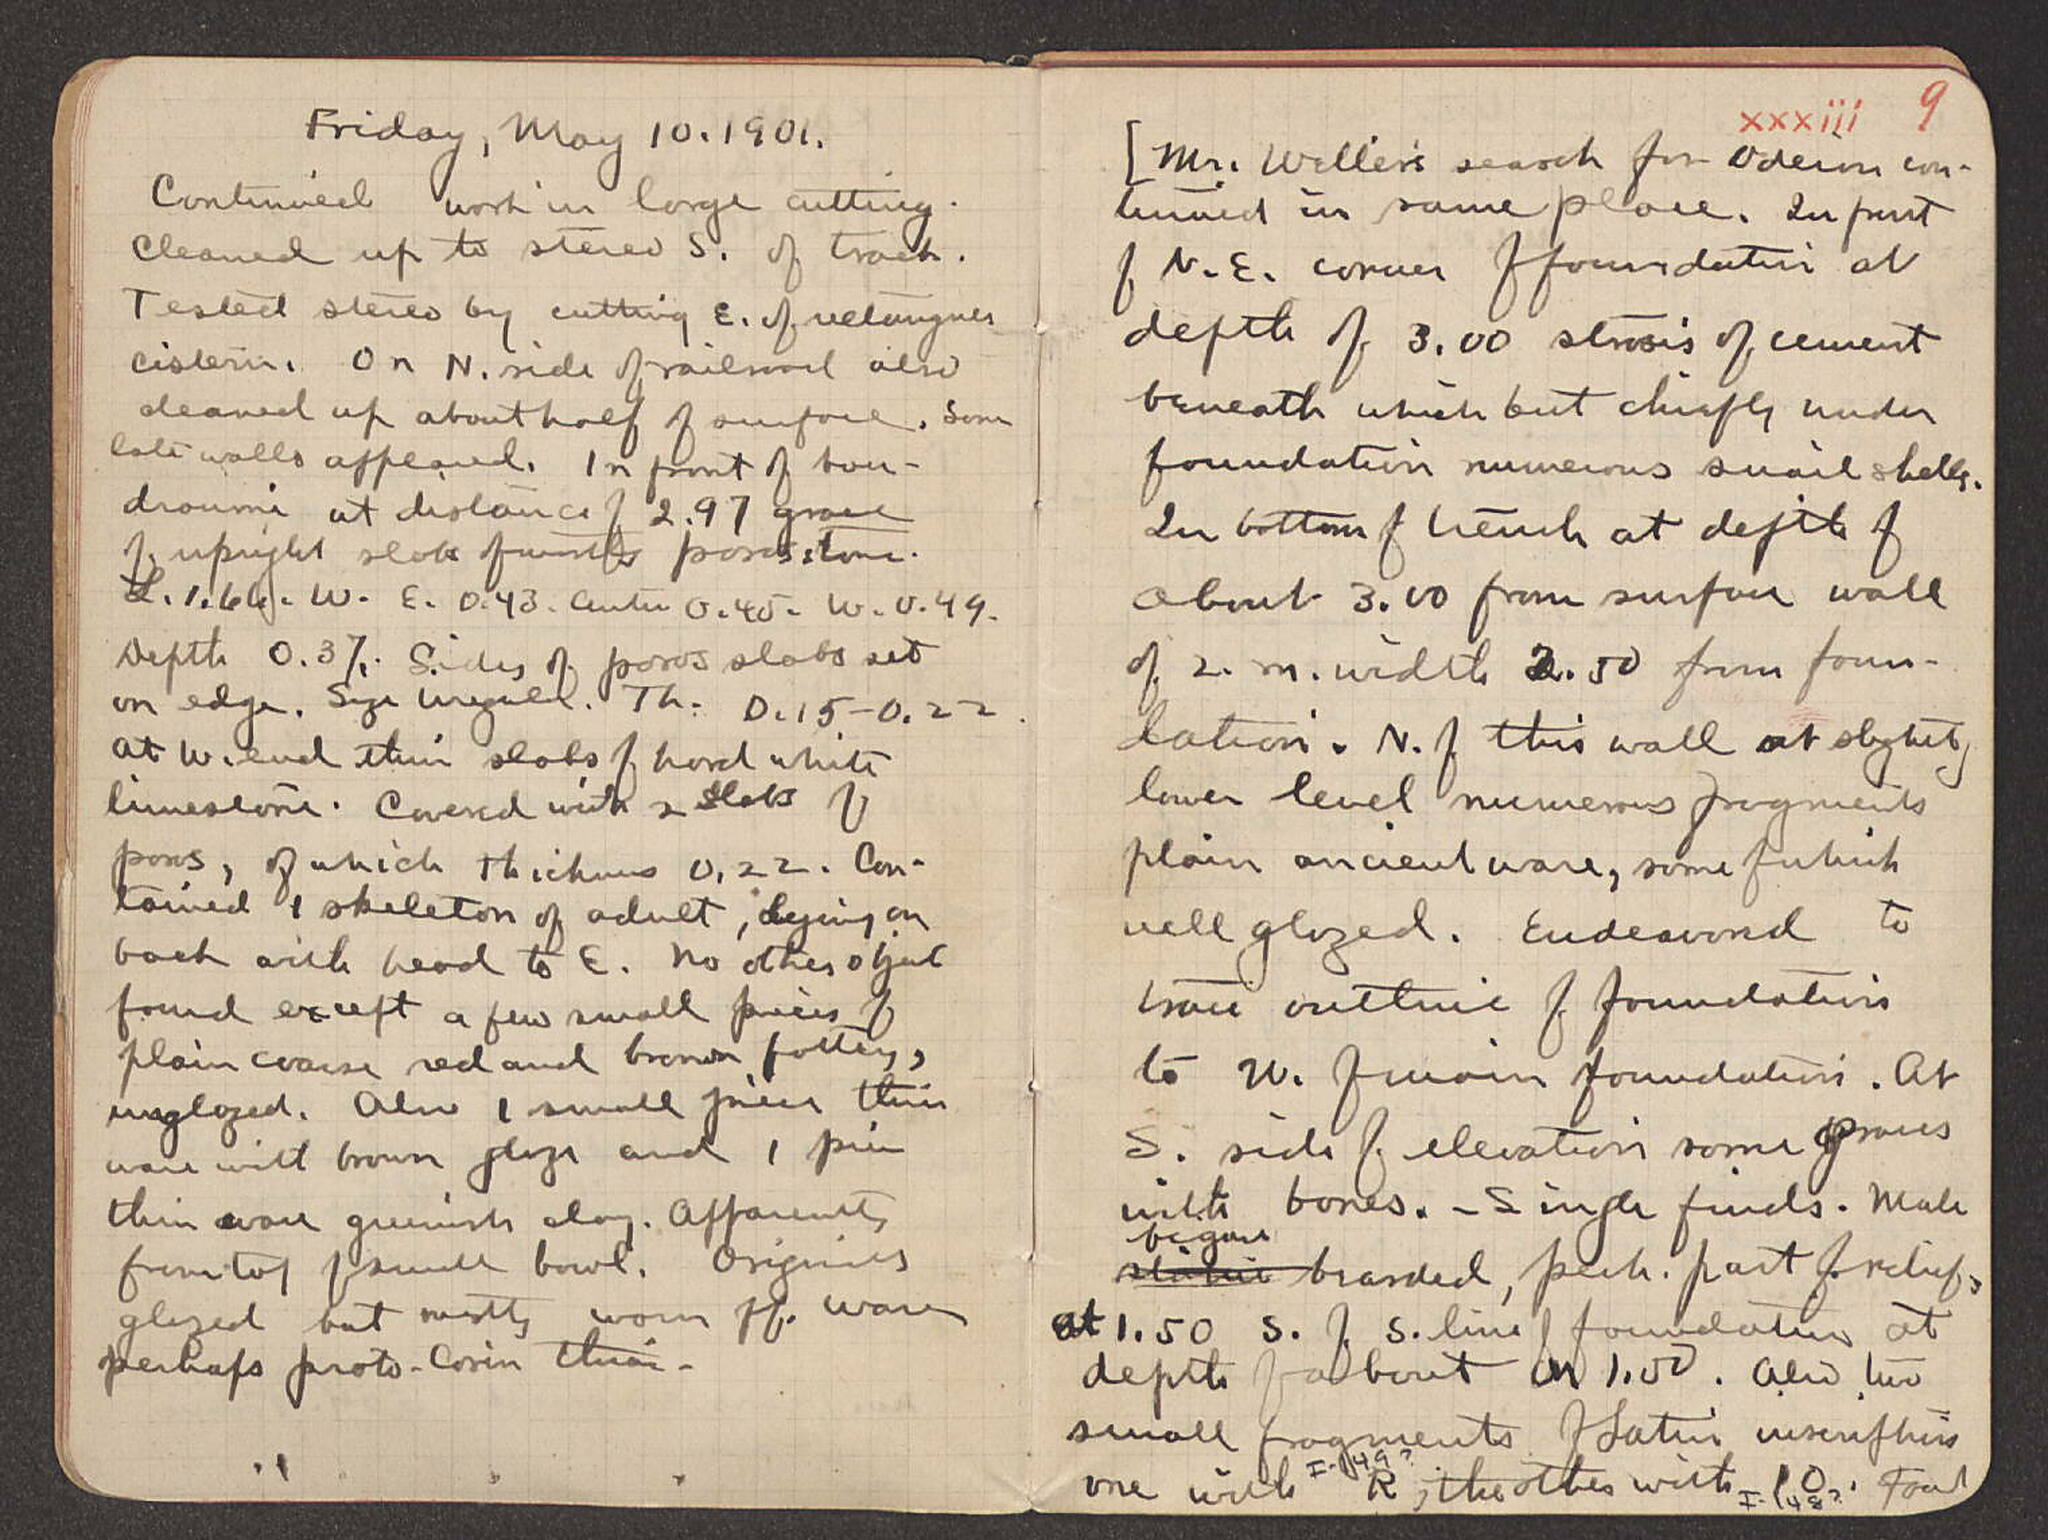 Friday, May 10. 1901.
Continued work in large cutting.
Cleaned up to stereo S. of track.
Tested stereo by cutting E. of
cistern. On N. side of railroad also
cleaned up about half of surface. Some
late walls appeared. In front of bou-
droumi at distance of 2.97 grave
of upright slabs of mostly poros stone.
L. 1.66. W. E. 0.43. Center 0.45. W. 0.49.
Depth 0.37. Sides of poros slabs set
on edge. Size irregul. Th. 0.15-0.22.
At W. end thin slabs of hard white
limestone. Covered with 2 slabs of
poros, of which thickness 0.22. Con-
tained 1 skeleton of adult, lying on
back with head to E. No other object
found except a few small pieces of
plain coarse red and brown pottery,
unglazed. Also 1 small piece thin
ware with brown glaze and 1 piece
thin ware greenish clay. Apparently
from top of small bowl. Originally
glazed but mostly worn off. Ware
perhaps proto-Corinthian.
xxxiii 9
[Mr. Weller's search for Odeion con-
tinued in same place. In front
of N.E. corner of foundation at
depth of 3.00 strosis of cement
beneath which but chiefly under
foundation numerous snail shells.
In bottom of trench at depth of
about 3.00 from surface wall
of 2. m. width 2.50 from foun-
dation. N. of this wall at slightly
lower level numerous fragments
plain ancient ware, some of which
well glazed. Endeavored to
trace outline of foundation
to W. of main foundation. At
S. side of elevation some graves
with bones. - Single finds. Male
figure
statue bearded, perh. part of relief,
at 1.50 S. of S. line of foundation at
depth of about 1.00. Also two
small fragments of Latin inscriptions
I-149?
one with R, the other with IO. Found
I-148?